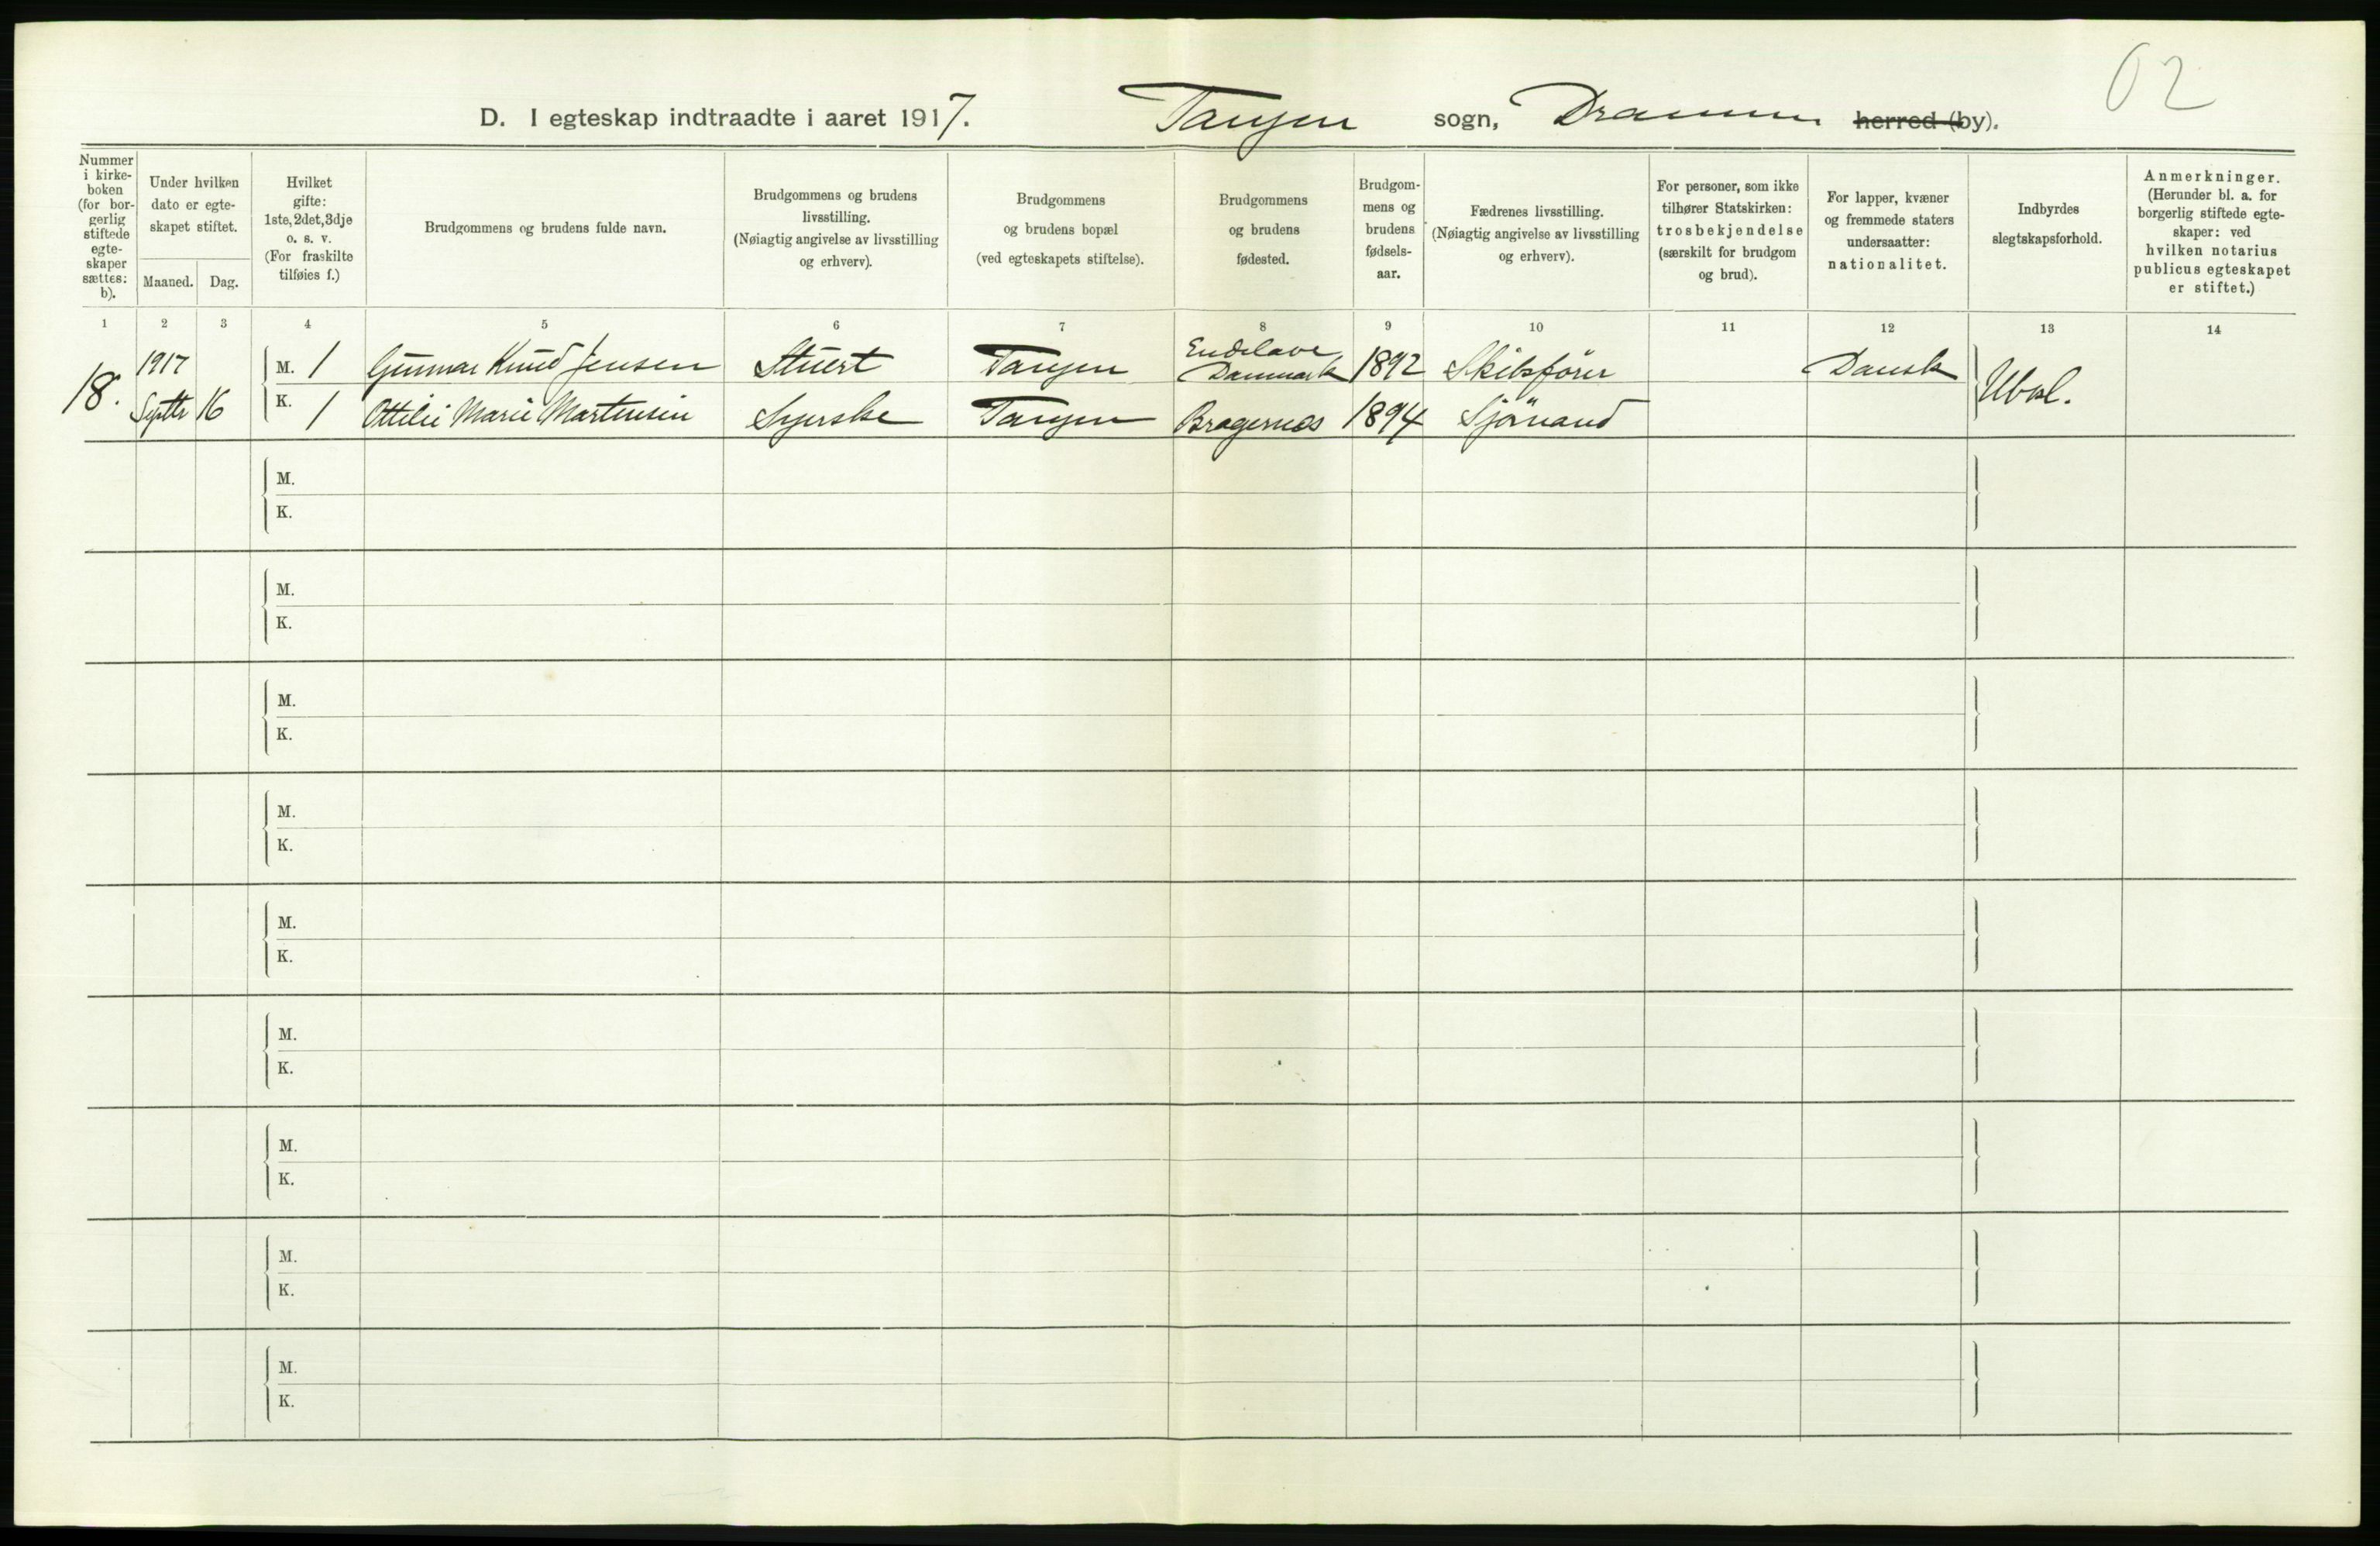 02
D. I egteskap indtraadte i aaret 1917. Tangen sogn, Drammen herred (by).
Nummer i kirke-boken (for bor-gerlig stiftede egte-skaper sættes: b).
Under hvilken dato er egte-skapet stiftet.
Maaned. Dag.
Hvilket gifte: 1ste, 2det, 3dje o. s. v. (For fraskilte tilføies f.)
Brudgommens og brudens fulde navn.
Brudgommens og brudens livsstilling. (Nøiagtig angivelse av livsstilling og erhverv).
Brudgommens og brudens bopæl (ved egteskapets stiftelse).
Brudgommens og brudens fødested.
Brudgom-mens og brudens fødsels-aar.
Fædrenes livsstilling. (Nøiagtig angivelse av livsstilling og erhverv).
For personer, som ikke tilhører Statskirken: trosbekjendelse (særskilt for brudgom og brud).
For lapper, kvæner og fremmede staters undersaatter: nationalitet.
Indbyrdes slegtskapsforhold.
Anmerkninger. (Herunder bl. a. for borgerlig stiftede egte-skaper: ved hvilken notarius publicus egteskapet er stiftet.)
1 2 3 4 5 6 7 8 9 10 11 12 13 14
18. 1917 M. 1 Gunnar Knud Jensen Stuert Tangen Endelave, Danmark 1892 Skibsfører Dansk Ubsl.
Septbr 16 K. 1 Ottilie Marie Martensen Syerske Tangen Bragernes 1894 Sjömand
M.
K.
M.
K.
M.
K.
M.
K.
M.
K.
M.
K.
M.
K.
M.
K.
M.
K.